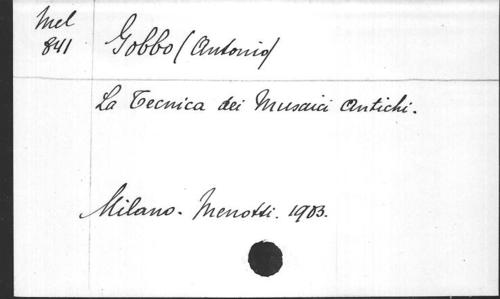 Mel
841
Gobbo (Antonio)
La Tecnica dei Musaici Antichi.
Milano. Menotti. 1903.